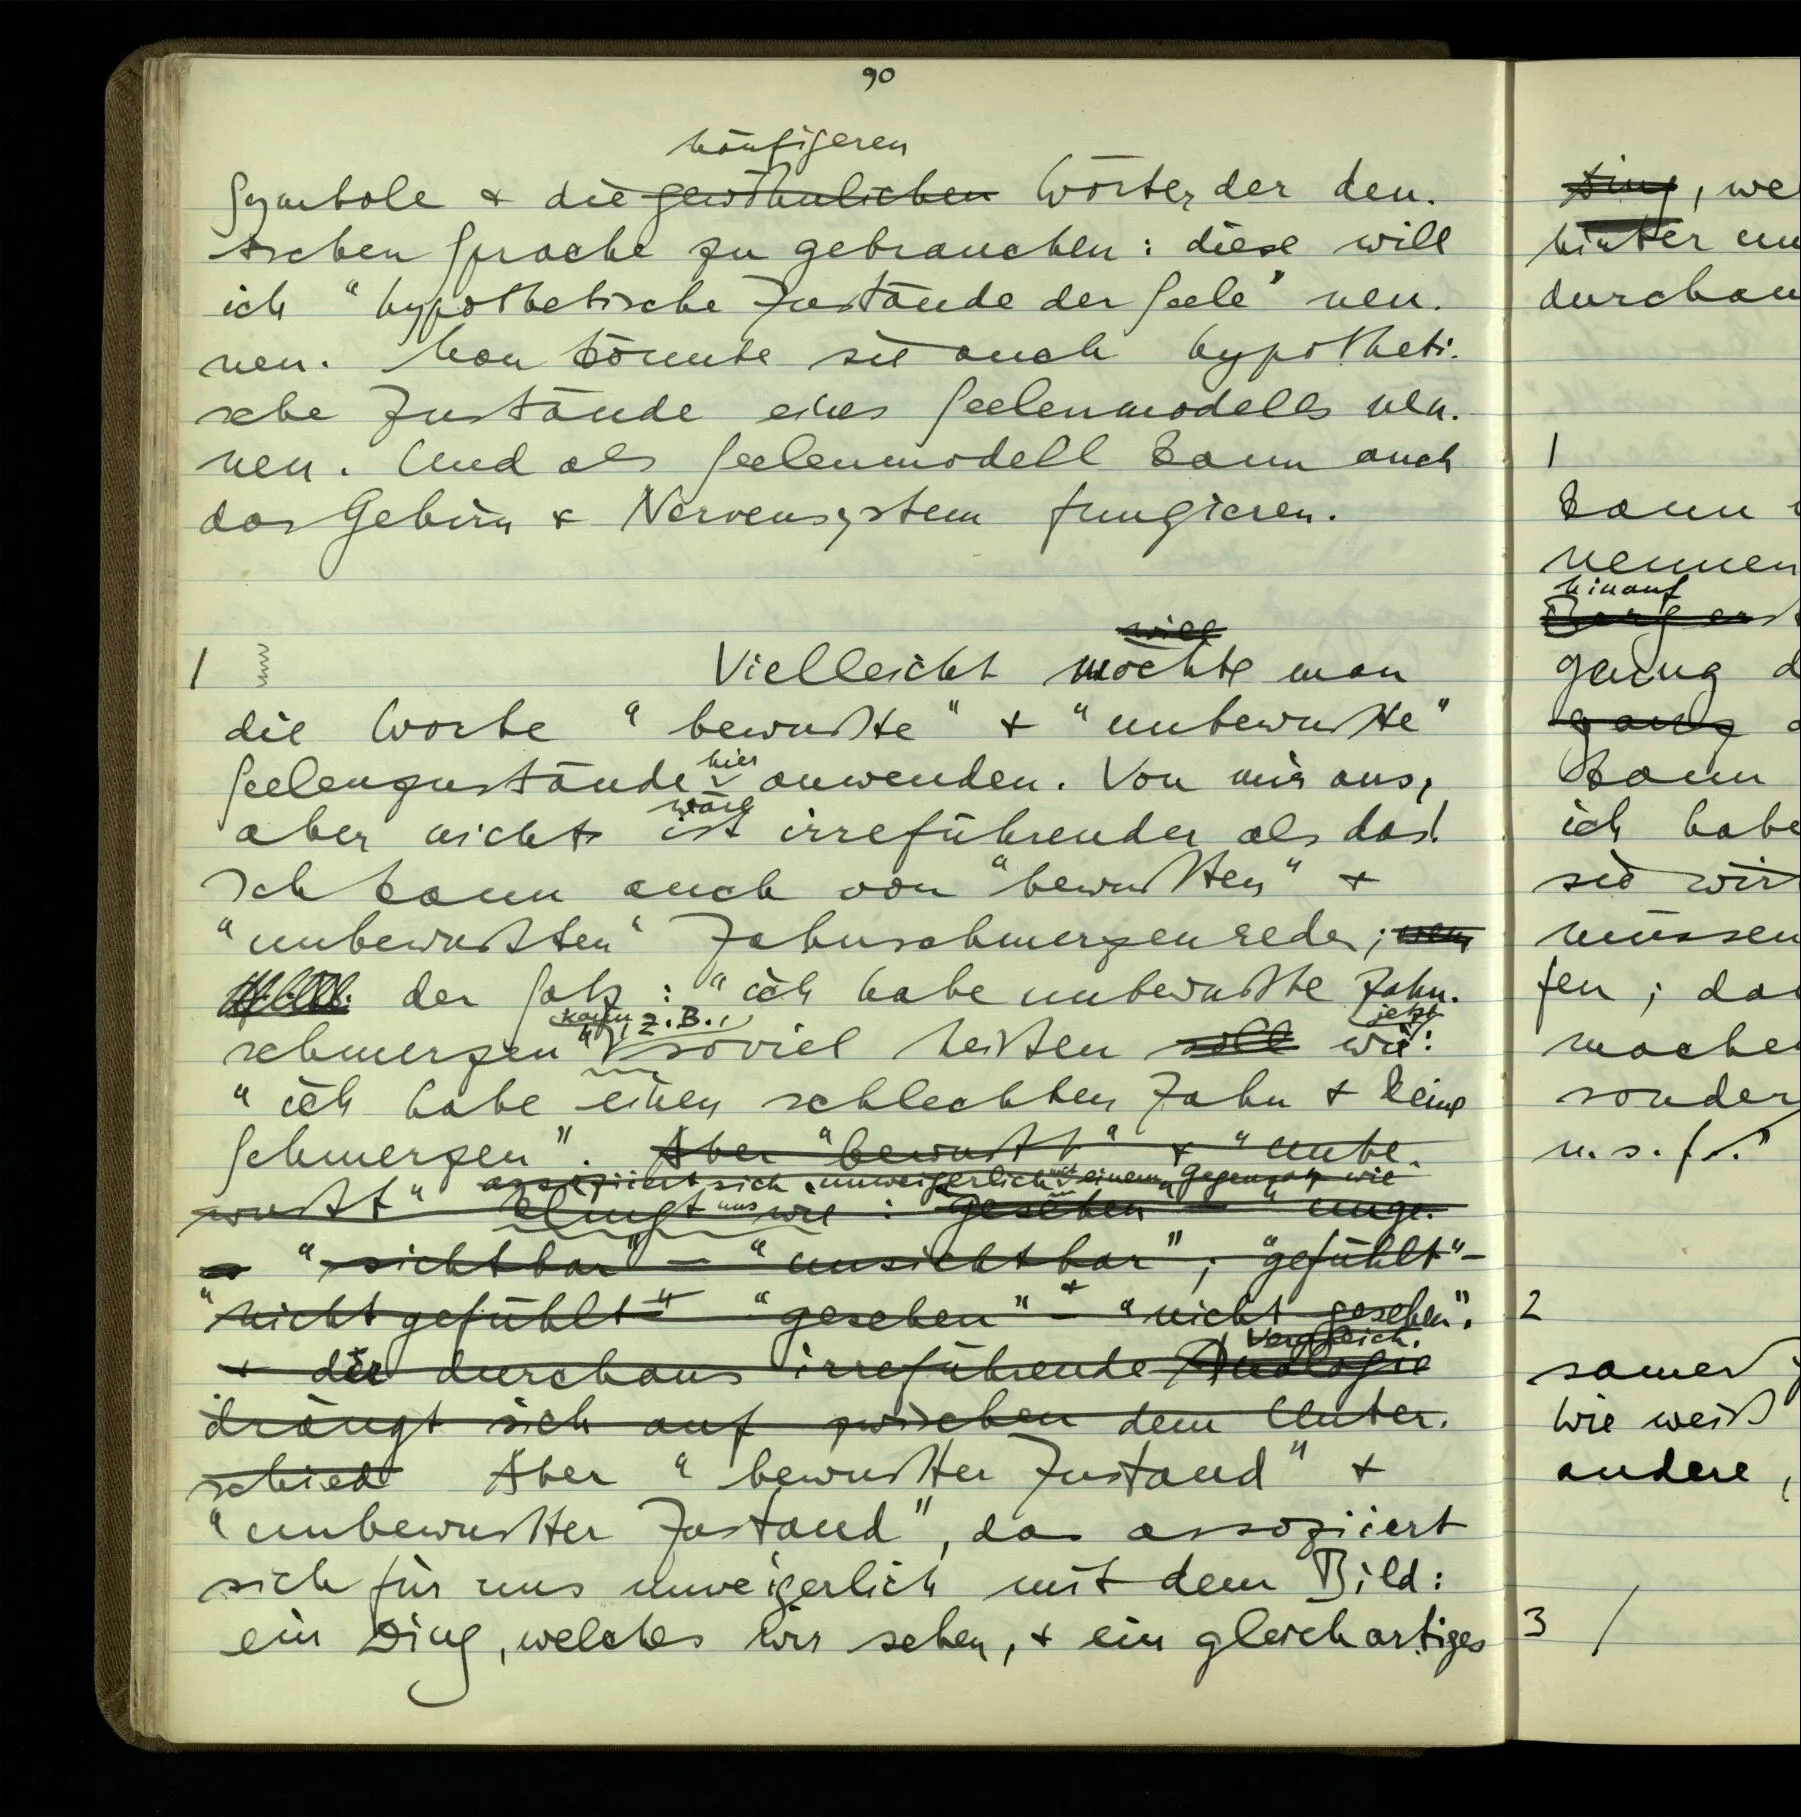 90
häufigeren
Symbole & die gewöhnlichen Wörter der deu-
tschen Sprache zu gebrauchen: diese will
ich "hypothetische Zustände der Seele" nen-
nen. Man könnte sie auch hypotheti-
sche Zustände eines Seelenmodells nen-
nen. Und als Seelenmodell kann auch
das Gehirn & Nervensystem fungieren.
will
1 Vielleicht möchte man
die Worte "bewußte" & "unbewußte"
hier
Seelenzustände anwenden. Von mir aus,
wäre
aber nichts ist irreführender als das!
Ich kann auch von "bewußten" &
"unbewußten" Zahnschmerzen reden;
der Satz: "ich habe unbewußte Zahn-
kann, z.B., jetzt
schmerzen" soviel heißen soll wie:
"ich habe einen schlechten Zahn & keine
Schmerzen". Aber "bewußt" & "unbe-
assoziiert sich unweigerlich mit einem Gegensatz wie
wußt" klingt uns wie: "gesehen" – "unge-
"sichtbar" – "unsichtbar"; "gefühlt" –
"nicht gefühlt" "gesehen" – & "nicht gesehen".
Vergleich
& die durchaus irreführende Analogie
drängt sich auf zwischen dem Unter-
schied Aber "bewußter Zustand" &
"unbewußter Zustand", das assoziiert
sich für uns unweigerlich mit dem Bild:
ein Ding, welches wir sehen, & ein gleichartiges
Ding, we
hinter un
durchau
1
kann
nennen
hinauf
Berg
genug d
ganz
kann
ich habe
sie wir
müssen
fen; da
mache
sonder
u.s.f."
2
samer
Wie weiß
andere,
3 /